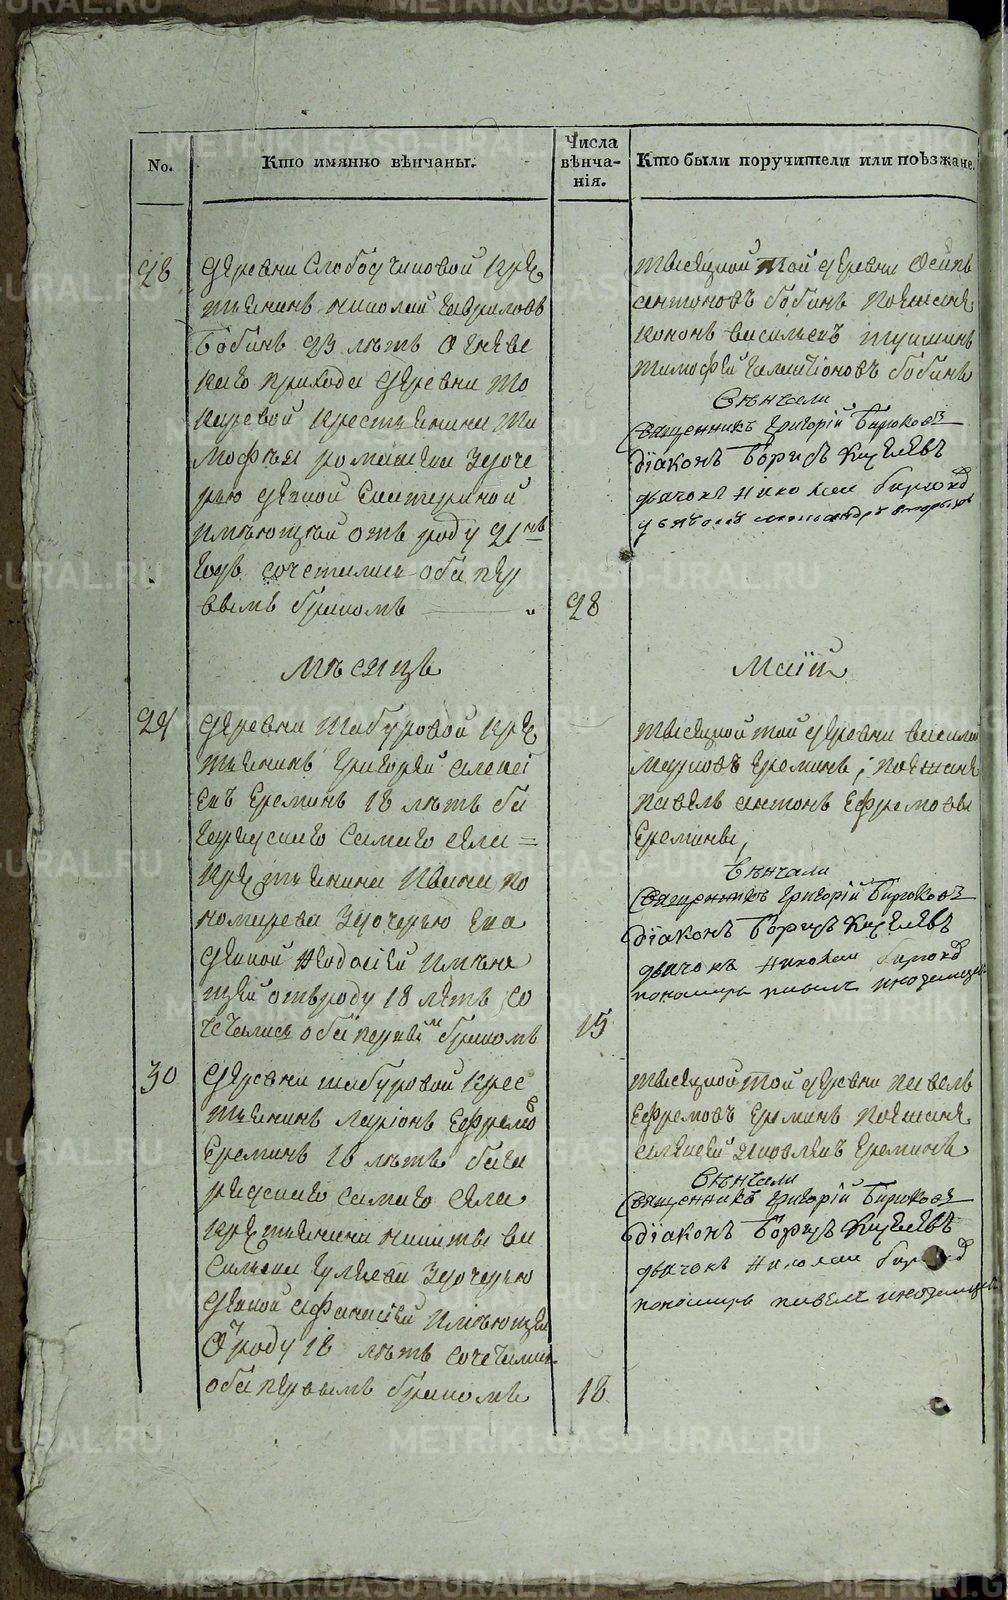 No.
Кто имянно вѣнчаны.
Числа
вѣнча-
нія.
Кто были поручители или поѣзжане.
28
деревни Слободчиковой кре
стьянинъ николай Гавриловъ
Бобинъ 23 лѣтъ Огнѣве
каго прихода деревни То
каревой крестьянина Ти
мофѣя романова здоче
рью девкой Екатериной
имѣющей отъ роду 21
годъ сочетались оба пер
вымъ бракомъ
28
тысяцкой той деревни Осипъ
антоновъ бобинъ поезжана
кононъ васильевъ
тимофей бобинъ
Вѣнчали
Священникъ Григорій Бирюковъ
Діаконъ Борисъ Киселевъ
дьячокъ николай бирюков
Мѣсяцъ
Маій
29
деревни Шабуровой кре
стьянинъ григорей алексѣ
евъ Ереминъ 18 лѣтъ ба
гарядскаго самаго села =
крестьянина Ивана по
номарева здочерью ево
девкой Федосіей имѣю
щей отъроду 18 летъ со
чечались оба первымъ бракомъ
15
тысяцкой той деревни василей
марковъ Ереминъ, поезжана
павелъ антонъ Ефремовы
Еремины,
вѣнчали
Священникъ Григорій Бирюковъ
Діаконъ Борисъ Киселевъ
дьячокъ николай бирюков
пономарь павелъ иноземцевъ
30
деревни шабуровой крес
тьянинъ Ларіонъ Ефремов
Ереминъ 18 летъ бага
рядскаго самаго села
крестьянина никиты ва
сильева здочерью
девкой афанасіей имеющей
Отроду 18 летъ сочетались
оба первымъ бракомъ
18
тысяцкой той деревни павелъ
Ефремовъ Ереминъ поезжана
алексей яковлевъ Ереминъ
Вѣнчали
Священникъ Григорій Бирюковъ
Діаконъ Борисъ Киселевъ
дьячокъ николай бирюков
пономарь павелъ иноземцевъ
METRIKI.GASU-URAL.RU